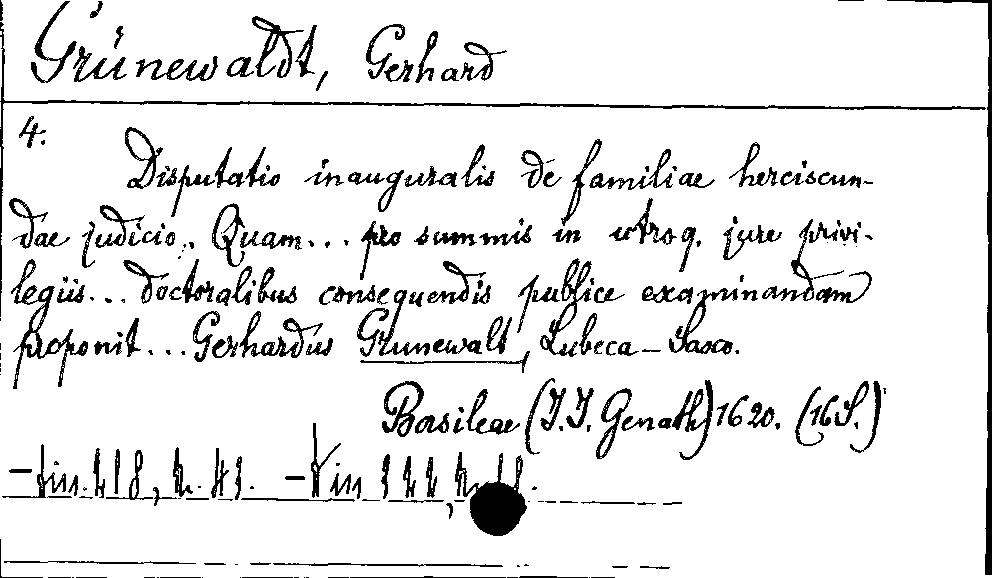 Grünewaldt, Gerhard
4.
Disputatio inauguralis de familiae herciscun-
dae judicio. Quam... pro summis in utroq. jure privi-
legiis... doctoralibus consequendis publice examinandam
proponit... Gerhardus Grunewalt, Lubeca-Saxo.
Basileae (J. J. Genath) 1620. (16 S.)
- in 218,
- in 322,